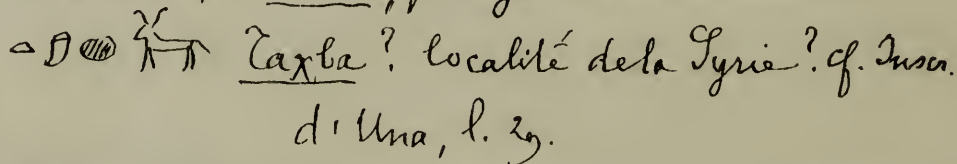 Taχba? localité de la Syrie? cf. Inscr.
d'Una, l. 29.